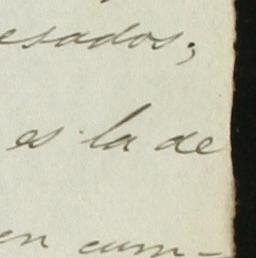 esados;
es la de
en cum-